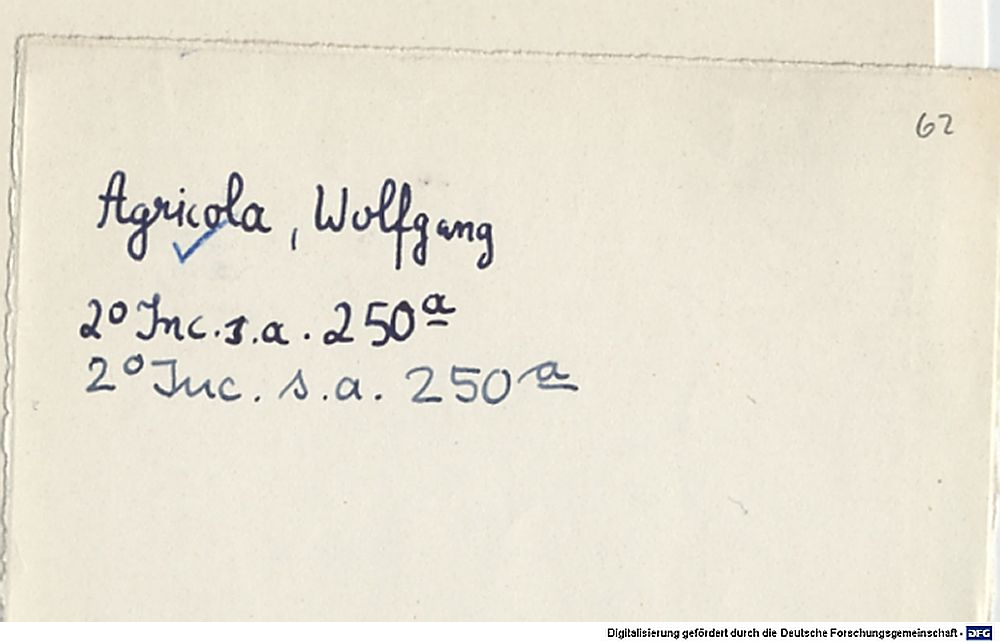 62
Agricola, Wolfgang
2° Inc. s. a. 250ª
2° Inc. s. a. 250ª
Digitalisierung gefördert durch die Deutsche Forschungsgemeinschaft - DFG